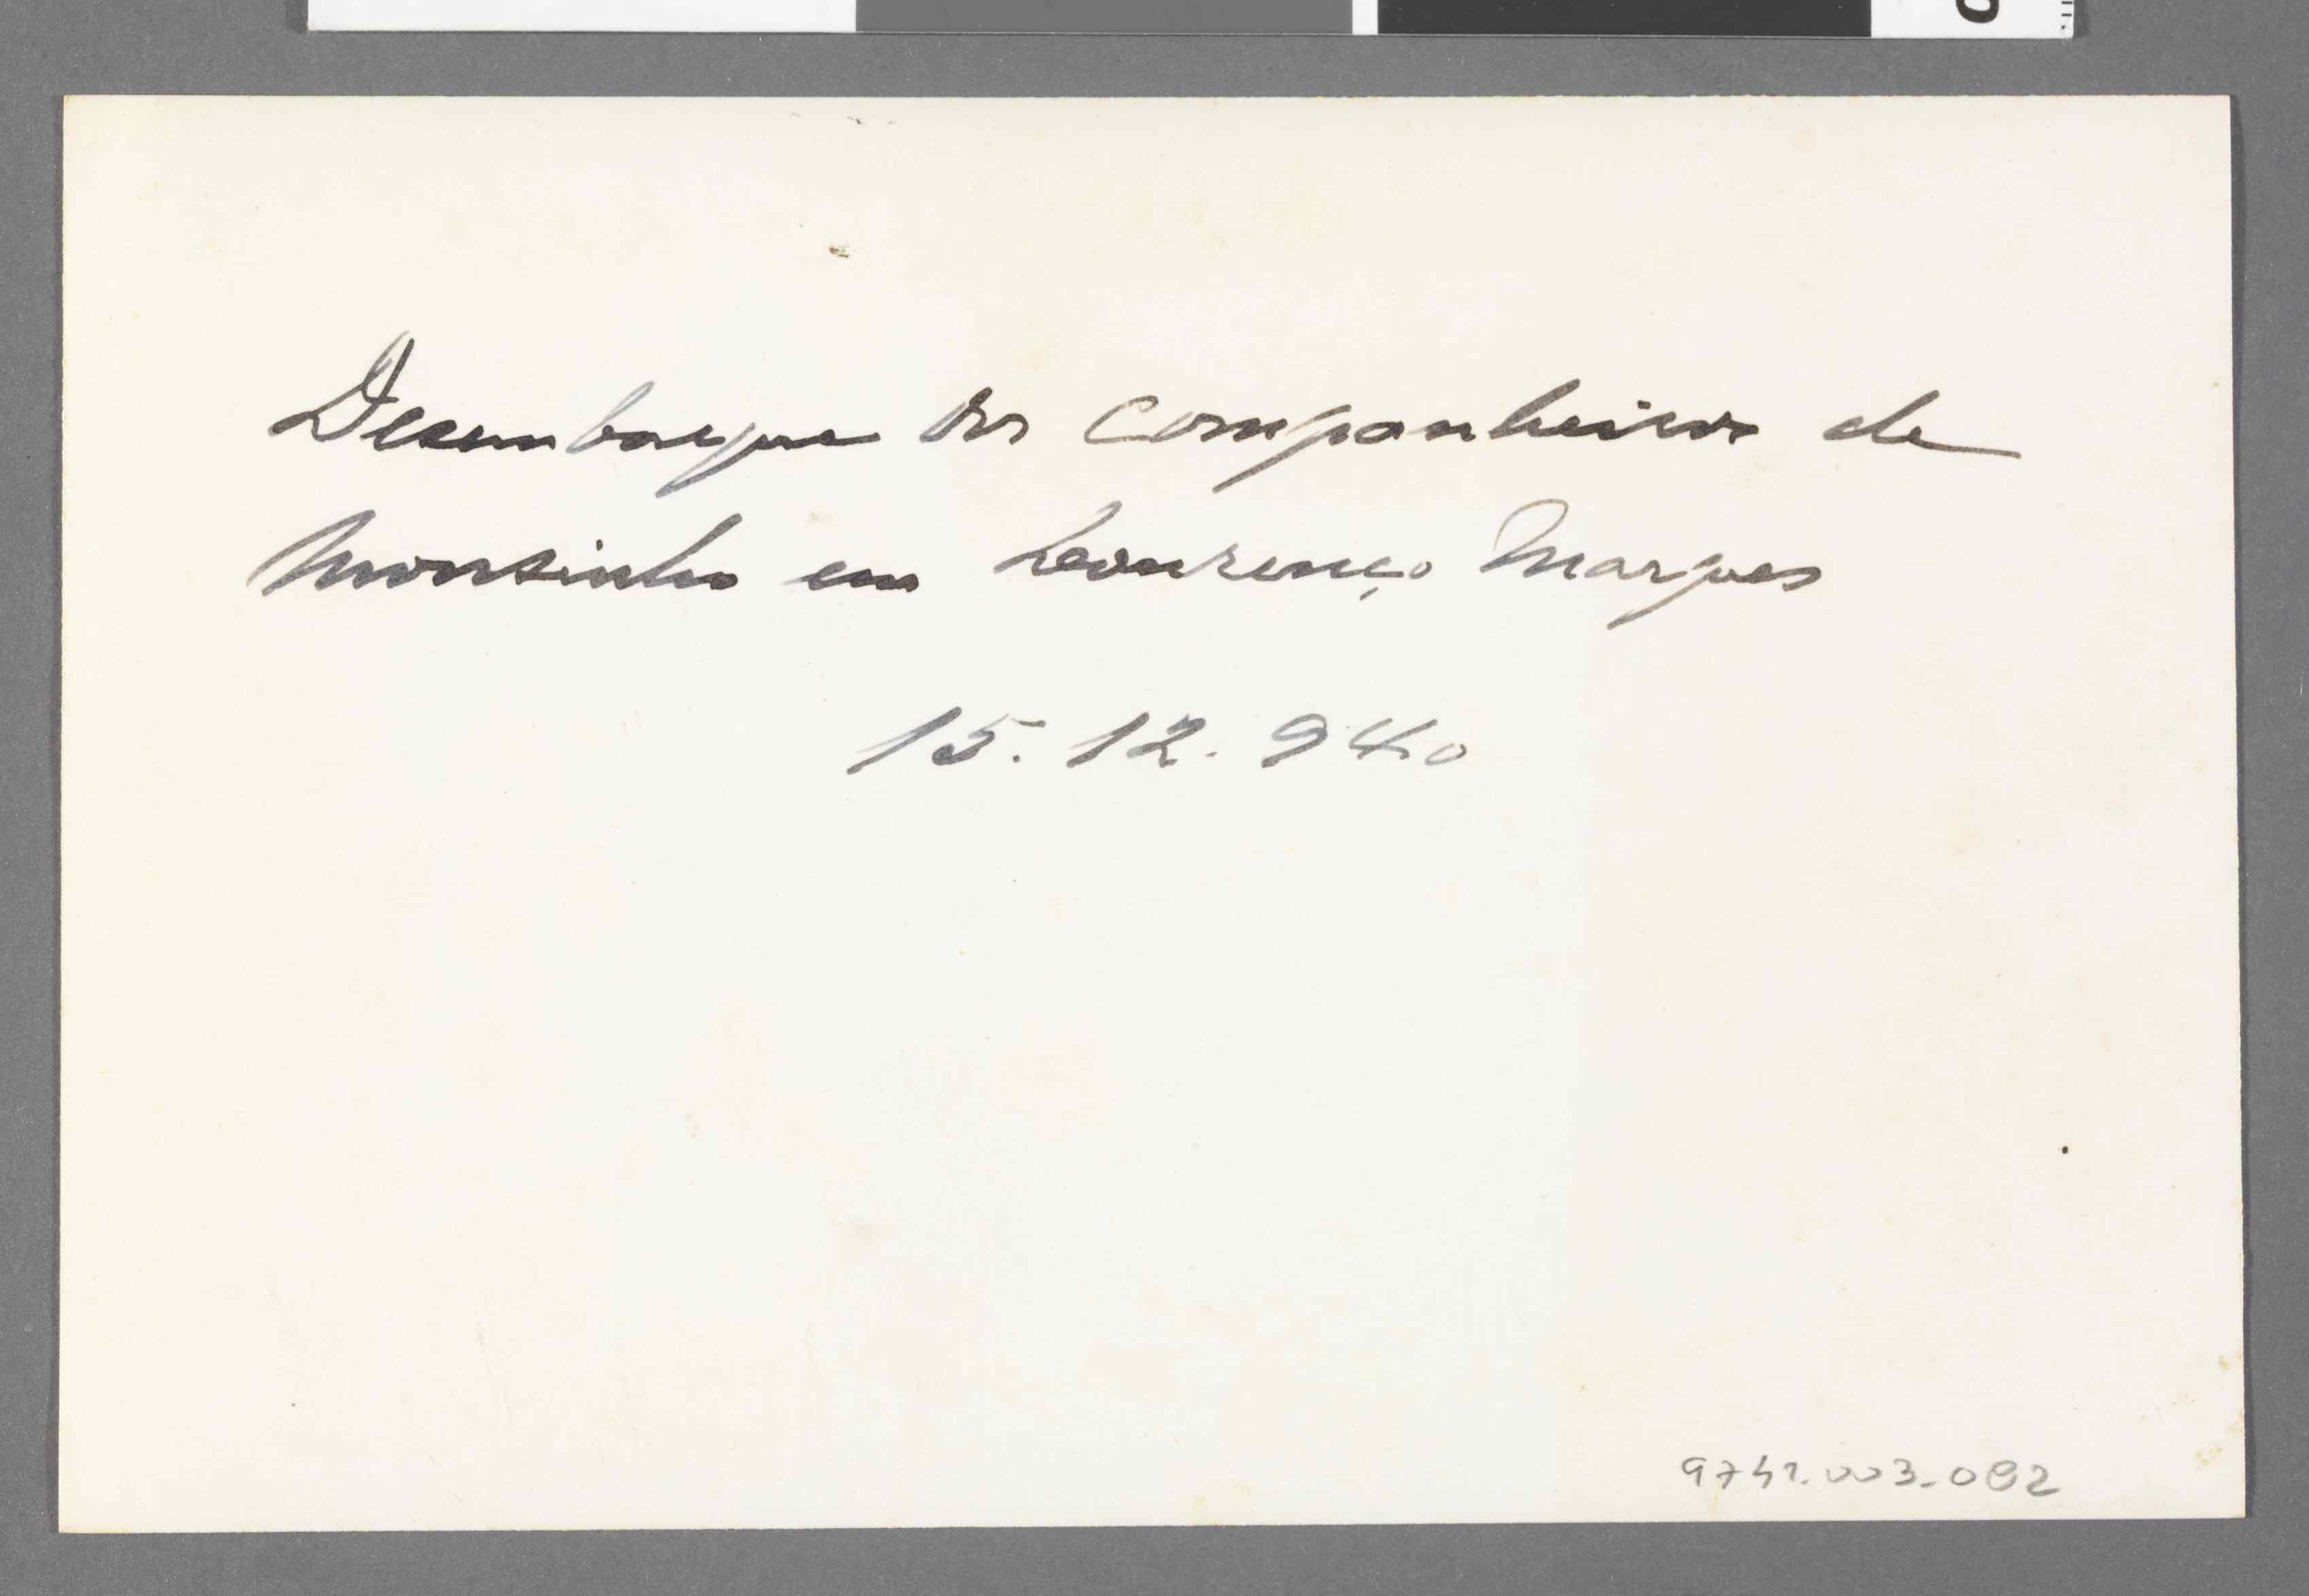 Desembarque dos companheiros de
Mousinho em Lourenço Marques
15.12.940
9741.003.082